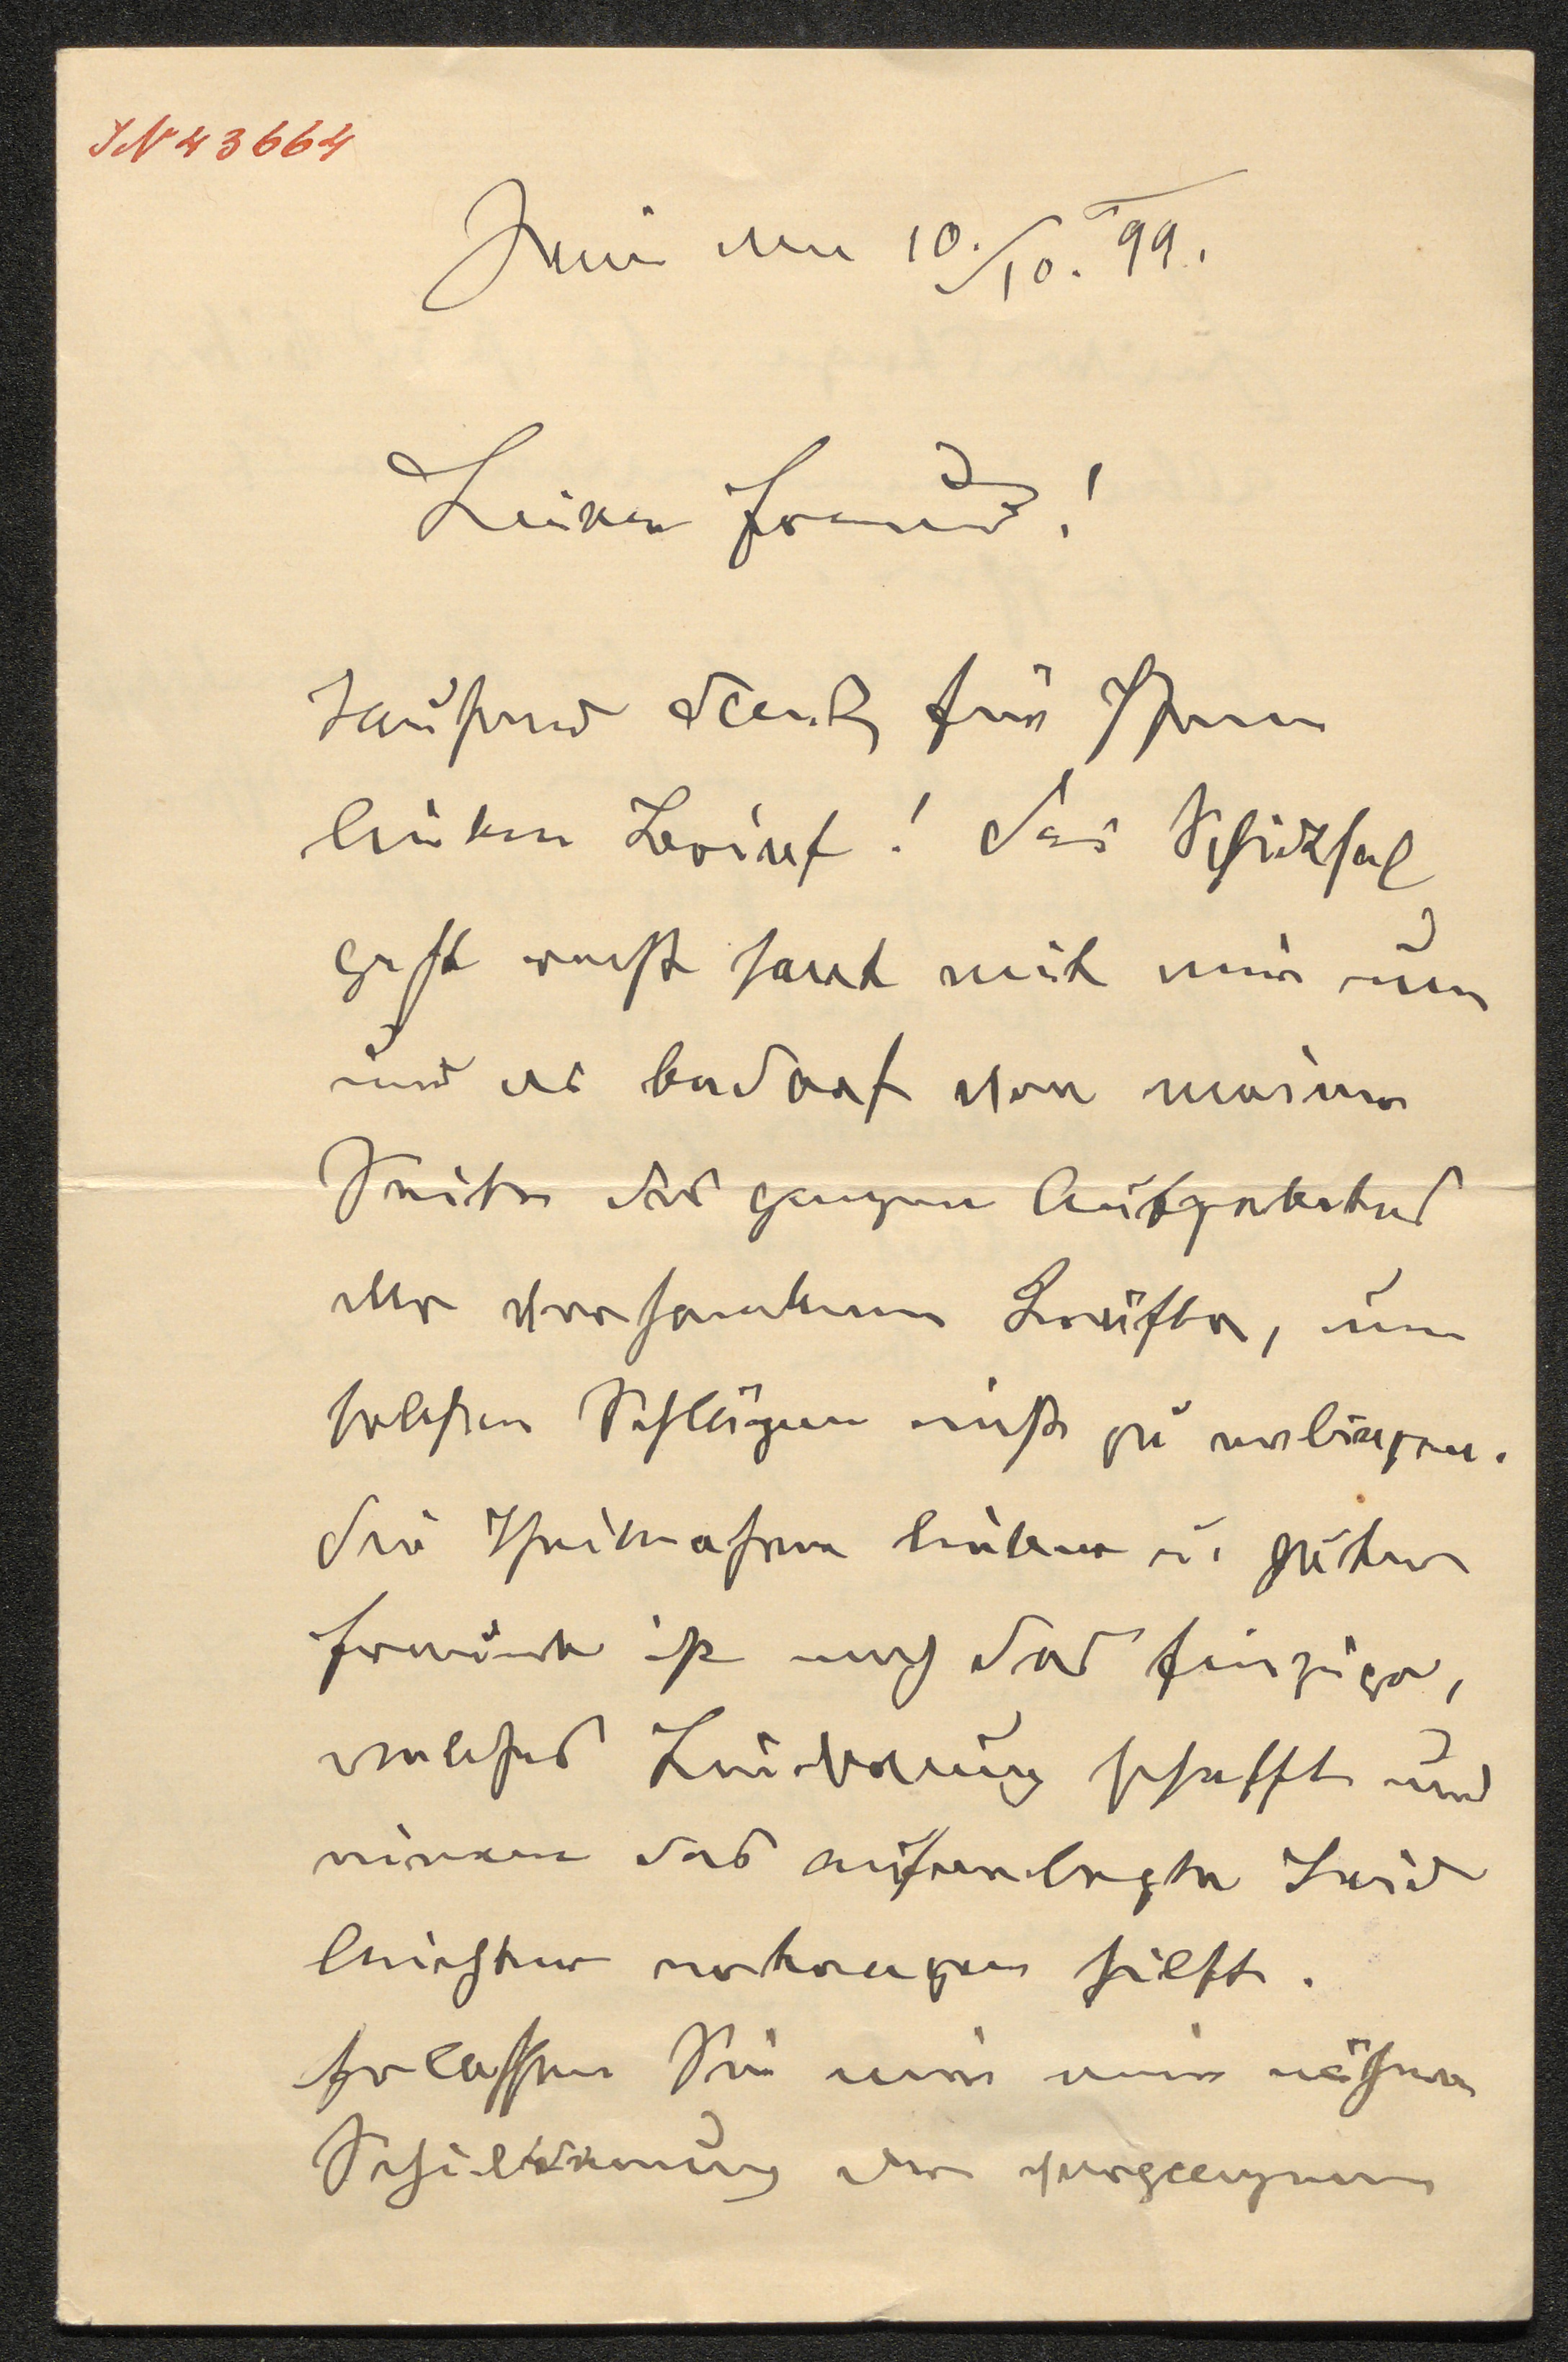 IN 43664
den 10./10. 99.
Lieber Freund!
Tausend Dank für Ihren
lieben Brief! Das Schicksal
geht recht hart mit mir um
und es bedarf von meiner
Seite des ganzen Aufgebotes
der vorhandenen Kräfte, um
solchen Schlägen nicht zu erliegen.
Die Theilnahme lieber u. guter
Freunde ist noch das Einzige,
welches Linderung schafft und
einem das auferlegte Leid
leichter ertragen hilft.
Erlassen Sie mir eine nähere
Schilderung der vergangenen